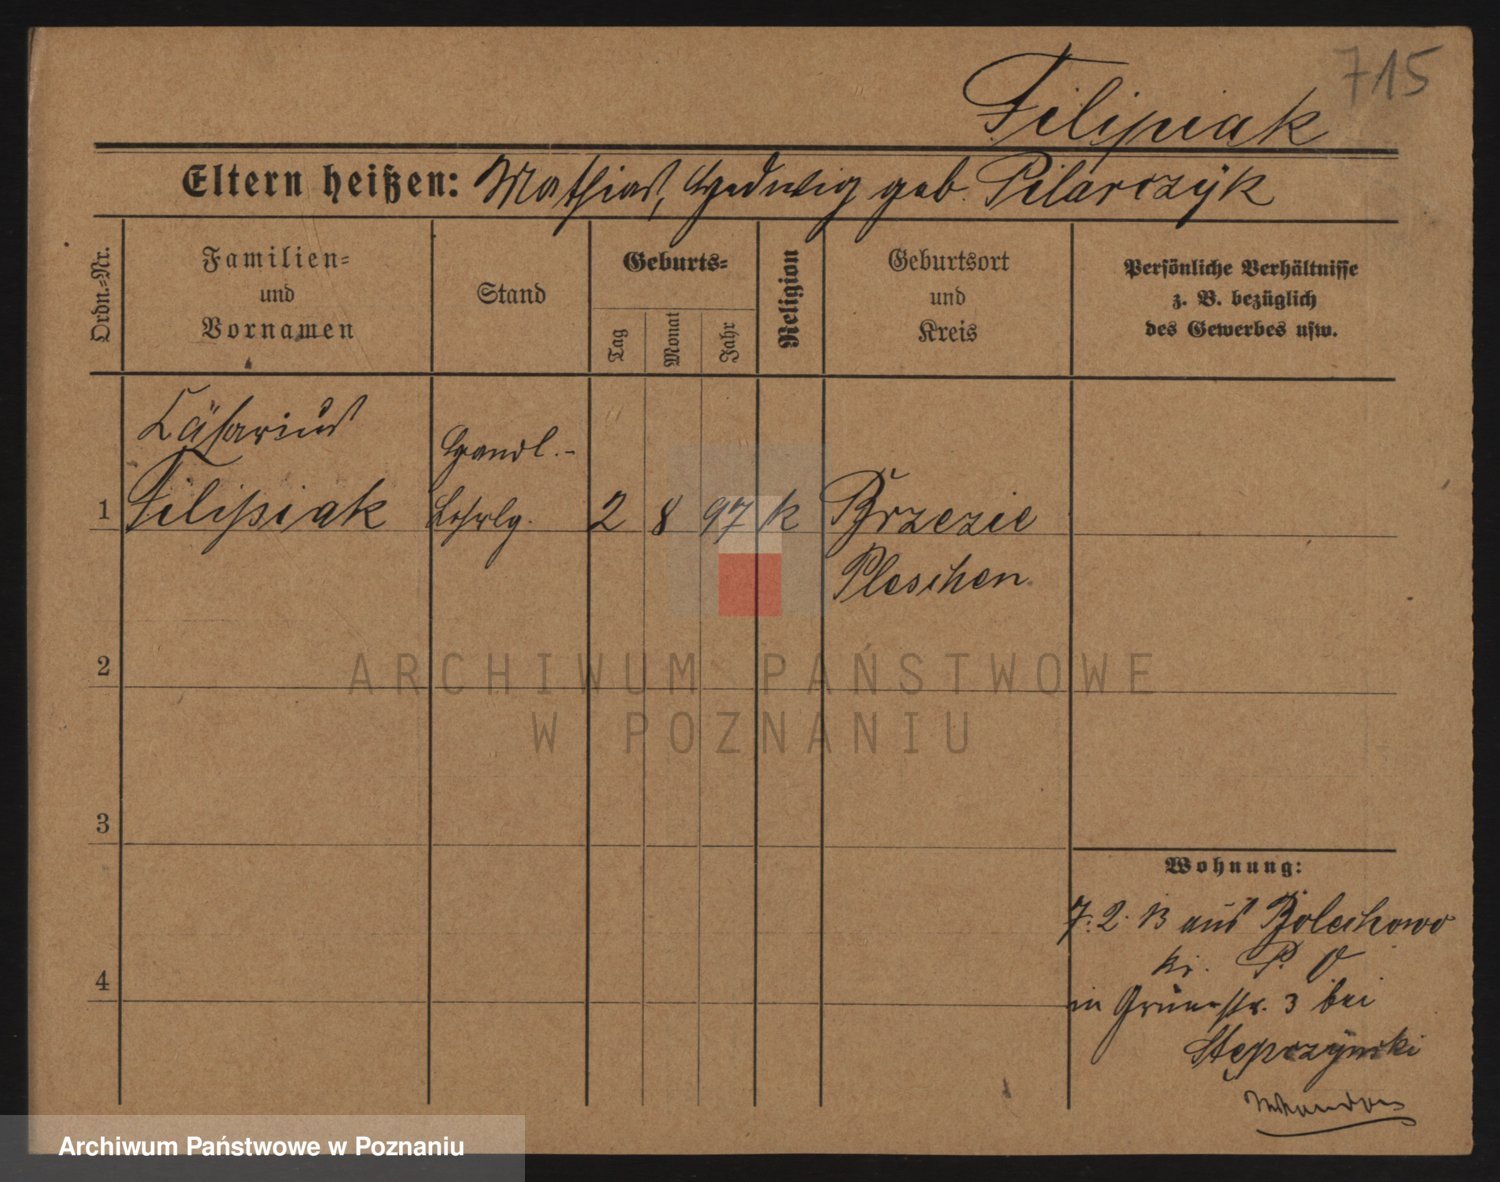 715
Filipiak
Eltern heißen: Mathias, Hedwig geb. Pilarczyk
Ordn.-Nr.
Familien-
und
Vornamen
Stand
Geburts-
Tag
Monat
Jahr
Religion
Geburtsort
und
Kreis
Persönliche Verhältnisse
z. B. bezüglich
des Gewerbes usw.
Cäsarius
Handl.-
1 Filipiak Lehrlg. 2 8 97 k Brzezie
Pleschen
2
3
4
Wohnung:
7. 2. 13 aus Bolechowo
Kr. P. O
in Grünestr. 3 bei
Stępczynski
ARCHIWUM PAŃSTWOWE
W POZNANIU
Archiwum Państwowe w Poznaniu